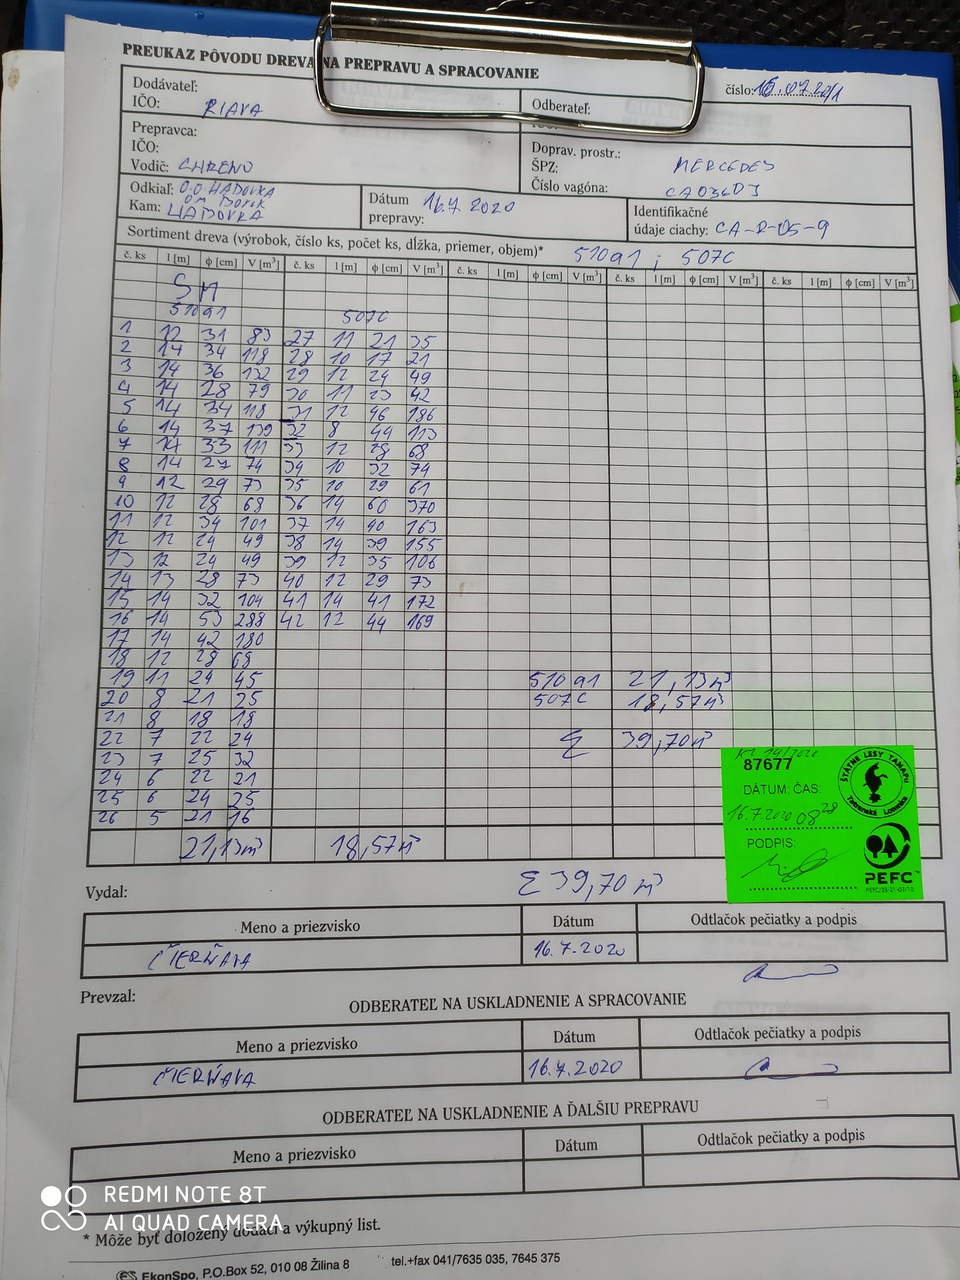 PREUKAZ PÔVODU DREVA NA PREPRAVU A SPRACOVANIE
číslo: 16.0720/1
Dodávateľ:
IČO: RIAVA
Odberateľ:
Prepravca:
IČO:
Vodič: CHRENO
Doprav. prostr.:
ŠPZ: MERCEDES
Číslo vagóna:
Odkiaľ: O.O HADOVKA
Kam: HADOVKA
Dátum
prepravy: 16.7 2020
Identifikačné
údaje ciachy: CA-R-05-9
Sortiment dreva (výrobok, číslo ks, počet ks, dĺžka, priemer, objem)* 510a1 ; 507C
č. ks l [m] ϕ [cm] V [m³] č. ks l [m] ϕ [cm] V [m³] č. ks l [m] ϕ [cm] V [m³] č. ks l [m] ϕ [cm] V [m³] č. ks l [m] ϕ [cm] V [m³]
SM
510a1 507C
1 12 31 83 27 11 21 35
2 14 34 118 28 10 17 21
3 14 36 132 29 12 24 49
4 14 28 79 30 11 23 42
5 14 34 118 31 12 46 186
6 14 37 139 32 8 44 113
7 14 33 111 33 12 28 68
8 14 27 74 34 10 32 74
9 12 29 73 35 10 29 61
10 12 28 68 36 14 60 370
11 12 34 101 37 14 40 163
12 12 24 49 38 14 39 155
13 12 24 49 39 12 35 106
14 13 28 73 40 12 29 73
15 14 32 104 41 14 41 172
16 14 53 288 42 12 44 169
17 14 42 180
18 12 28 68
19 11 24 45 510a1 21,13m³
20 8 21 25 507C 18,57m³
21 8 18 18
22 7 22 24 Σ 39,70m³
23 7 25 32
24 6 22 21
25 6 24 25
26 5 21 16
21,13m³ 18,57m³
87677
DÁTUM: ČAS:
16.7.2020 08 28
PODPIS:
ŠTÁTNE LESY TANAPU
Tatranská Lomnica
PEFC
Vydal: Σ 39,70 m³
Meno a priezvisko Dátum Odtlačok pečiatky a podpis
ČIERŇAVA 16.7.2020
Prevzal:
ODBERATEĽ NA USKLADNENIE A SPRACOVANIE
Meno a priezvisko Dátum Odtlačok pečiatky a podpis
ČIERŇAVA 16.7.2020
ODBERATEĽ NA USKLADNENIE A ĎALŠIU PREPRAVU
Meno a priezvisko Dátum Odtlačok pečiatky a podpis
REDMI NOTE 8T
AI QUAD CAMERA
* Môže byť doložený dodací a výkupný list.
EkonSpo, P.O.Box 52, 010 08 Žilina 8 tel.+fax 041/7635 035, 7645 375